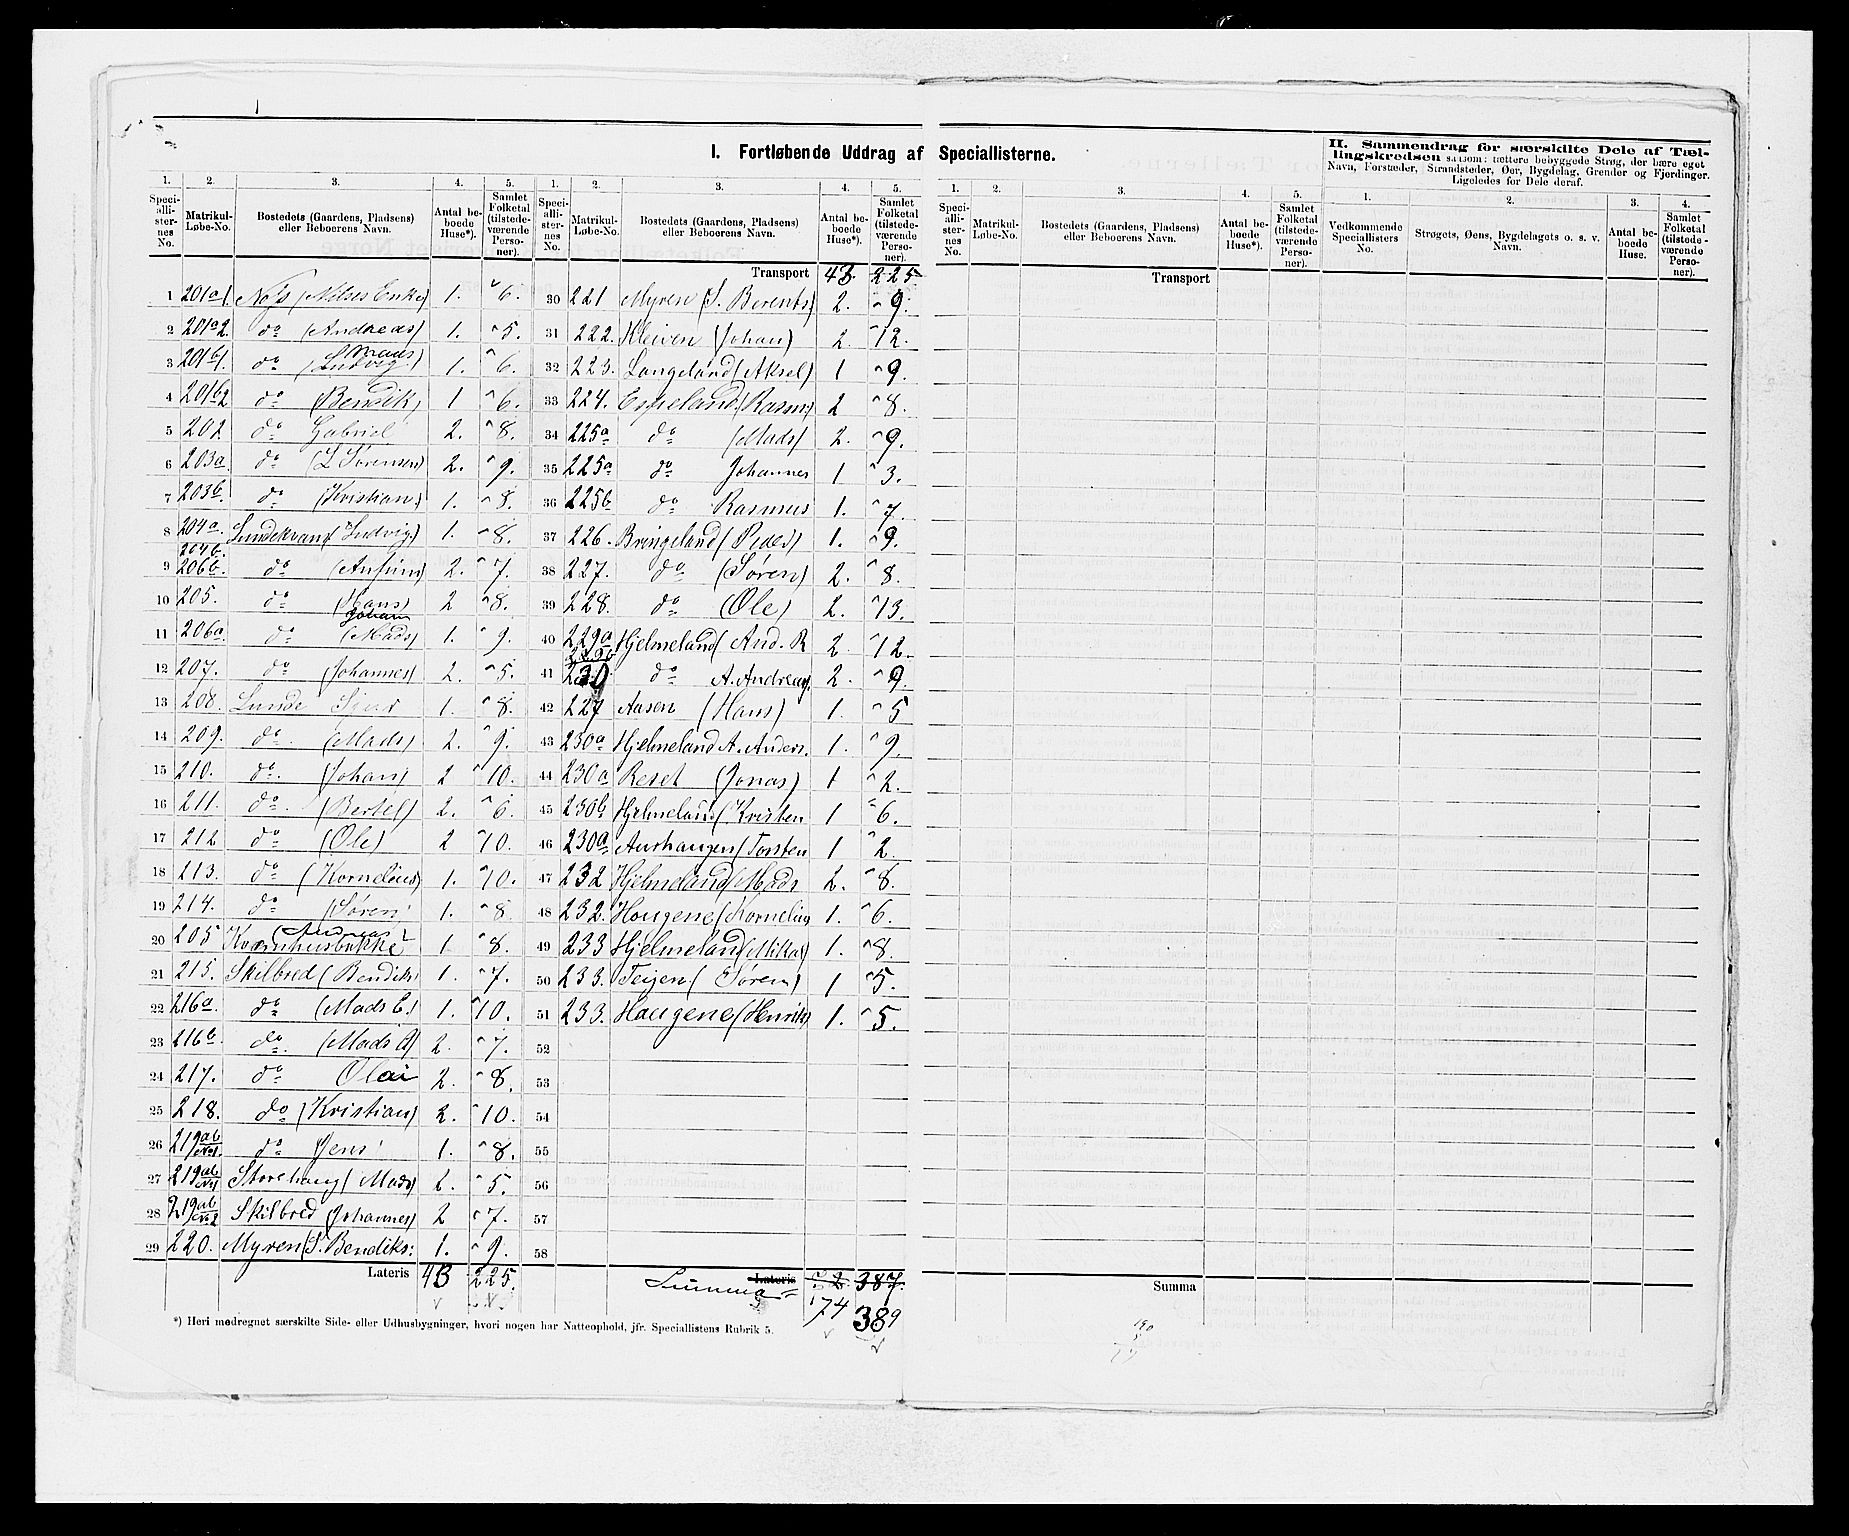 I. Fortløbende Uddrag af Speciallisterne.
II. Sammendrag for særskilte Dele af Tællingskredsen saasom: tættere bebyggede Strøg, der bære eget Navn, Forstæder, Strandsteder, Øer, Bygdelag, Grender og Fjerdinger. Ligeledes for Dele deraf.
1. 2. 3. 4. 5. 1. 2. 3. 4. 5. 1. 2. 3. 4. 5. 1. 2. 3. 4.
Speciallisternes No. Matrikul-Løbe-No. Bostedets (Gaardens, Pladsens) eller Beboerens Navn. Antal beboede Huse*). Samlet Folketal (tilstedeværende Personer).
Speciallisternes No. Matrikul-Løbe-No. Bostedets (Gaardens, Pladsens) eller Beboerens Navn. Antal beboede Huse*). Samlet Folketal (tilstedeværende Personer).
Speciallisternes No. Matrikul-Løbe-No. Bostedets (Gaardens, Pladsens) eller Beboerens Navn. Antal beboede Huse*). Samlet Folketal (tilstedeværende Personer).
Vedkommende Speciallisters No. Strøgets, Øens, Bygdelagets o. s. v. Navn. Antal beboede Huse. Samlet Folketal (tilstedeværende Personer).
1 201a1. 1. 6.
2 201a2. do (Andreas) 1. 5.
3 201b1. do (Ludvig) 1. 6.
4 201b2 do (Bendik) 1 6.
5 202 do Gabriel 2. 8.
6 203a. do (L Sørensen) 2. 9.
7 203b. do (Kristian) 1. 8.
8 204a. (Ludvig) 1. 8.
9 204b. 206b. do 2. 7.
10 205. do (Hans) 2 8.
11 206a. do Johan (Mads) 1. 9.
12 207. do (Johannes) 2. 5.
13 208. Lunde 1. 8.
14 209. do (Mads) 2. 9.
15 210. do. (Johan) 2 10.
16 211. do. (Bertel) 2. 6.
17 212 do (Ole) 2 10.
18 213. do (Kornelius) 1. 10.
19 214. do (Søren 1. 8
20 205 (Andreas) Kvernhusbakke 1. 8.
21 215. Skilbred (Bendiks) 1. 7.
22 216a. do (Mads E.) 1. 10.
23 216b. do. (Mads A) 2. 7.
24 217. do Olai 2. 8.
25 218. do (Kristian) 2. 10.
26 219ab No1. do Jens 1. 8.
27 219ab No1 Storehaug (Mads) 2. 5.
28 219ab No2 Skilbred (Johannes) 2 7.
29 220. Myren (S. Bendiks: 1. 9.
Lateris 43 225.
Transport 43. 225
30 221 Myren (S. Berents) 2. 9.
31 222. Kleiven (Johan) 2. 12.
32 223. Langeland (Aksel) 1 9.
33 224. Espeland (Rasm) 2 8.
34 225a do (Mads) 2. 9.
35 225a do Johannes 1 3.
36 225b do Rasmus 1. 7
37 226. Bringeland (Peder) 1. 9.
38 227. do (Søren) 2. 8.
39 228. do (Ole) 2. 13.
40 229a Hjelmeland (And. R 2. 12.
41 230 do A. Andreas. 2. 9
42 227 Aasen (Hans) 1. 5
43 230a Hjelmeland A. Anders. 1. 9.
44 230a Reset (Jonas) 1 2.
45 230b Hjelmeland (Kristen 1 6.
46 230a Aurhaugen (Torsten 1 2.
47 232 Hjelmeland (Mads 2. 8.
48 232. Haugene (Kornelius 1. 6.
49 233 Hjelmeland (Mikal) 1. 8.
50 233. Teigen (Søren) 1 5.
51 233. Haugene (Henrik) 1. 5.
52
53
54
55
56
57
58
Lateris Summa 72 387.
74 389
Transport
Summa
*) Heri medregnet særskilte Side- eller Udhusbygninger, hvori nogen har Natteophold, jfr. Speciallistens Rubrik 5.